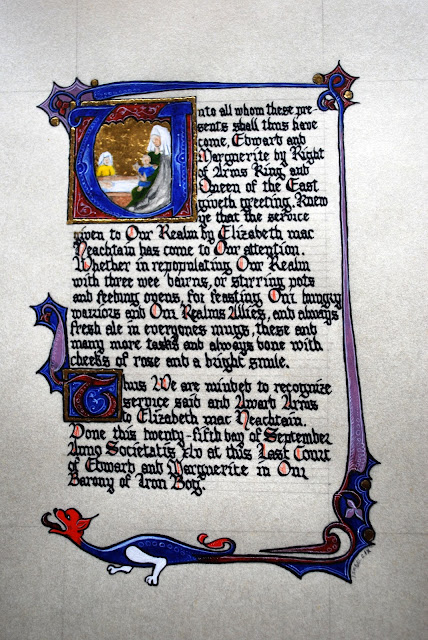 Unto all whom these pre-
sents shall thus have
come, Edward and
Marguerite by Right
of Arms King and
Queen of the East
giveth greeting. Knew
ye that the service
given to Our Realm by Elizabeth mac
Neachtain has come to Our attention.
Whether in repopulating Our Realm
with three wee bairns, or stirring pots
and feeding ovens, for feasting Our hungry
warriors and Our Realms Allies, and always
fresh ale in everyones mugs, these and
many more tasks and always done with
cheeks of rose and a bright smile.
Thus We are minded to recognize
service said and Award Arms
to Elizabeth mac Neachtain.
Done this twenty-fifth day of September
Anno Societatis xlv at this Last Court
of Edward and Marguerite in Our
Barony of Iron Bog.